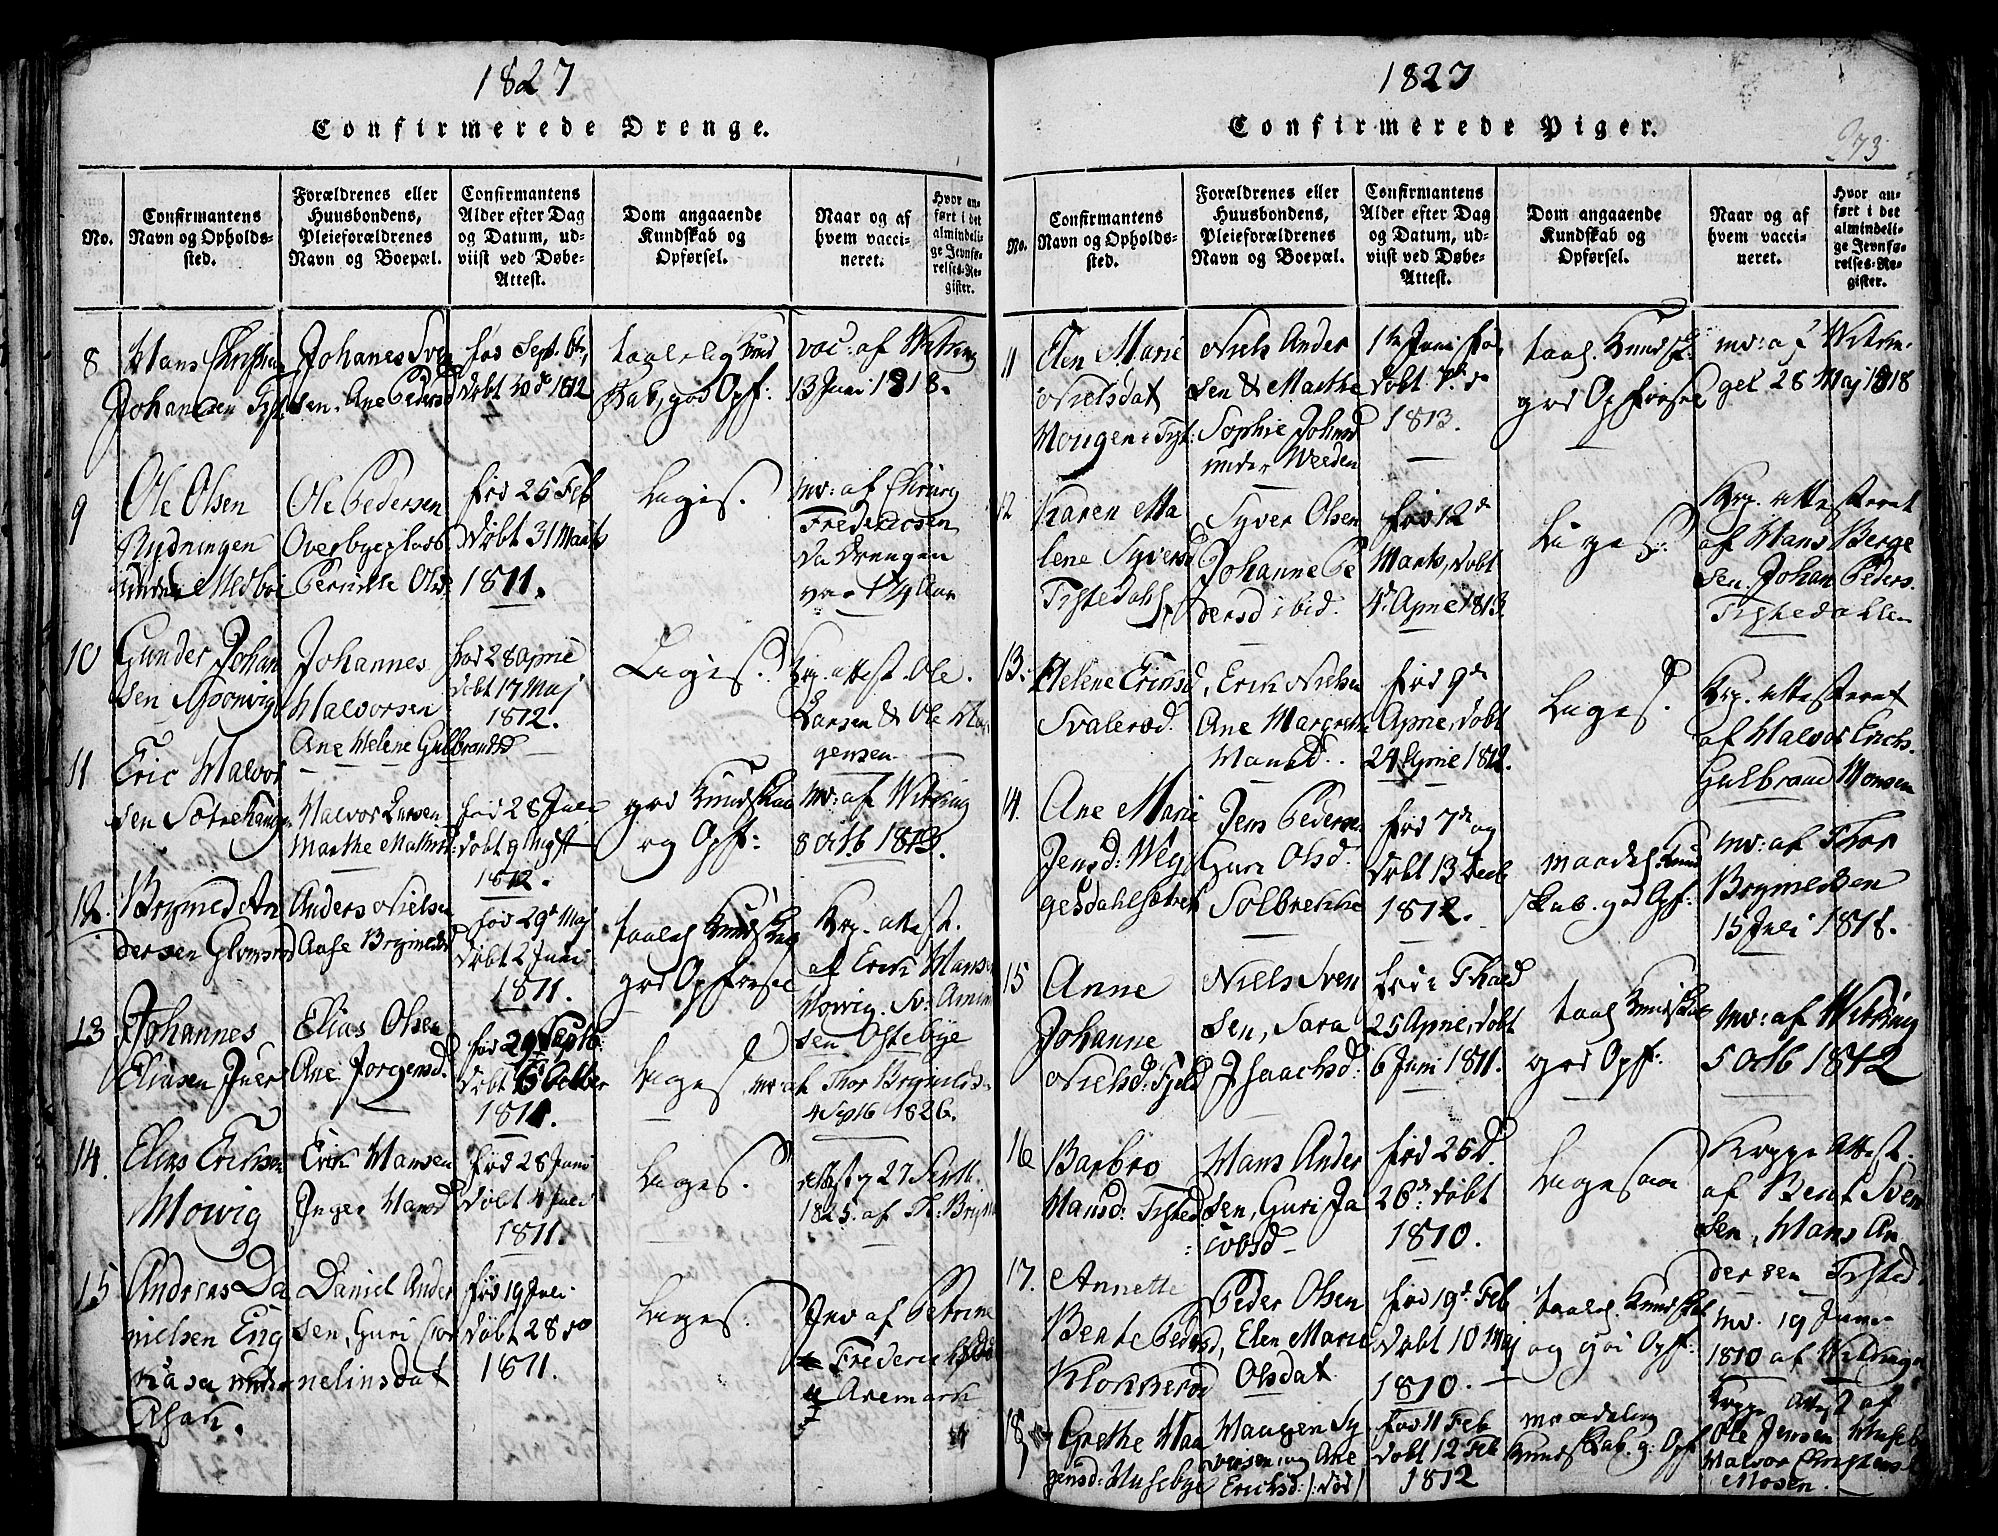 1827
Confirmerede Drenge.
No.
Confirmantens
Navn og Opholds-
sted.
Forældrenes eller
Huusbondens,
Pleieforældrenes
Navn og Boepæl.
Confirmantens
Alder efter Dag
og Datum, ud-
viist ved Døbe-
Attest.
Dom angaaende
Kundskab og
Opførsel.
Naar og af
hvem vacci-
neret.
Hvor an-
ført i det
almindeli-
ge Jevnfø-
relses-Re-
gister.
8
Hans Christian
Johansen Tist
Johanes Sven
sen. Ane Pedersd
fød Sept. 6te,
Døbt 10de 1812
taalelig Kund
skab, god Opf:
vac: af Wetring
13 Juni 1818.
9
Ole Olsen
Rydningen
under Medboe
Ole Pedersen
Overbyeplads
Pernille Olsd
fød 25 Feb
Døbt 31 Marts
1811.
Liges.
inv: af Chirurg
Fredericsen
da Drengen
var 1 1/4 Aar
10
Gunder Johan
sen Spovvig
Johannes
Halvorsen
Ane Helene Gulbrandsd
fød 28 Aprie
Døbt 17 Maj
1812.
Liges.
Kop. attest. Ole
Larsen & Ole
gensen
11
Eric Halvor
sen
Halvor Larsen
Marthe Mathis:
fød 28 Juli
Døbt 9 Augst
1812.
god Kundskab
og Opf:
inv: af Wetring
8 Octb 1813.
12.
Brynned An
dersen
Anders Nielsen
Aase Brynnelsd
fød 29d Maj
Døbt 2 Juni
1811.
taalel Kundskab
god Opførsel
Kop. attest.
af Erik Hansen
Howig. Sv: Amun
sen Ostebye
13
Johannes
Eliasen
Elias Olsen
Ane Jorgensd.
fød 29 Septb.
Døbt 6 Octber
1811.
Liges
inv: af Thor Brynilds
4 Septb 1826.
14.
Elias Eriksen
Howig
Erik Hansen
Inger Hansd
fød 28 Juni
Døbt 4 Juli
1811.
Liges.
27 Septb.
1825. af Th: Bryn
15
Andreas Da
nielsen Eng
under
Asak.
Daniel Ander
sen, Guri Cor
nelinsdat
fød 19 Juli
Døbt 28 do
1811.
Liges.
Inv af Petrine
Frederic
Aremark
1827
Confirmerede Piger.
273
No.
Confirmantens
Navn og Opholds-
sted.
Forældrenes eller
Huusbondens,
Pleieforældrenes
Navn og Boepæl.
Confirmantens
Alder efter Dag
og Datum, ud-
viist ved Døbe-
Attest.
Dom angaaende
Kundskab og
Opførsel.
Naar og af
hvem vacci-
neret.
Hvor an-
ført i det
almindeli-
ge Jevnfø-
relses-Re-
gister.
11
Elen Marie
Nielsdat
Hougen Tist:
Niels Ander
sen & Marthe
Sophie Johnsd
under Weeden
1ste Juni fød,
Døbt 7de do
1813.
taal. Kundsk:
god Opførsel
inv: af Wetrin
get 28 Maj 1818
12
Karen Ma
lene Syversd
Tistedahl
Syver Olsen
Johanne Pe
dersd ibid.
fød 12d
Marts, Døbt
4d Aprie 1813.
Liges:
Kop. attesteret
af Hans Berge
sen, Johan Peders.
Tistedahlen
13.
Helene Erichsd
Svalerød.
Erik Nielsen
Ane Margrethe
Hansd.
fød 9de
Aprie, Døbt
24 Aprie 1812.
Liges.
Kop. attesteret
af Halvor Erichs.
Gulbrand Monsen
14.
Ane Marie
Jensd: Weg
gesdahlsæteret
Jens Pedersen
Guri Olsd.
Solbrekke
fød 7de og
Døbt 13 Decb
1812.
maadel: Kund
skab. god Opf:
inv: af Thor
Brynnelsen
15 Juli 1818.
15
Anne
Johanne
Nielsd: Fjeld
Niels Sven
sen, Sara
Isaachsd.
fød i Thad
25 Aprie, Døbt
6 Juni 1811.
taal Kundskab
god Opf:
inv: af Wetring
5 Octb 1812
16
Barbro
Hansd: Tisted:
Hans Ander
sen, Guri Ja
cobsd
fød 25d.
26de Døbt
1810.
Ligesaa
Koppe Attest.
af Bent Sven
sen, Hans An
dersen Tisted
17.
Annette
Beate Pedersd
Klokkerød
Peder Olsen
Elen Marie
Olsdat
fød 19d. Feb
Døbt 10 Maj
1810.
taal. Kundskab
og god Opf:
inv. 19 Juni
1810 af Wetringen
18
Grethe Haa
gensd: Husebye
Haagen Sy
versen, og Ane
Erichsd: /: død /
fød 11 Feb
Døbt 12 Feb
1812
maadelig
Kundskab. g: Opf
Koppe Attest af
Ole Jensen Huseby
Halvor Christens
Mosen.